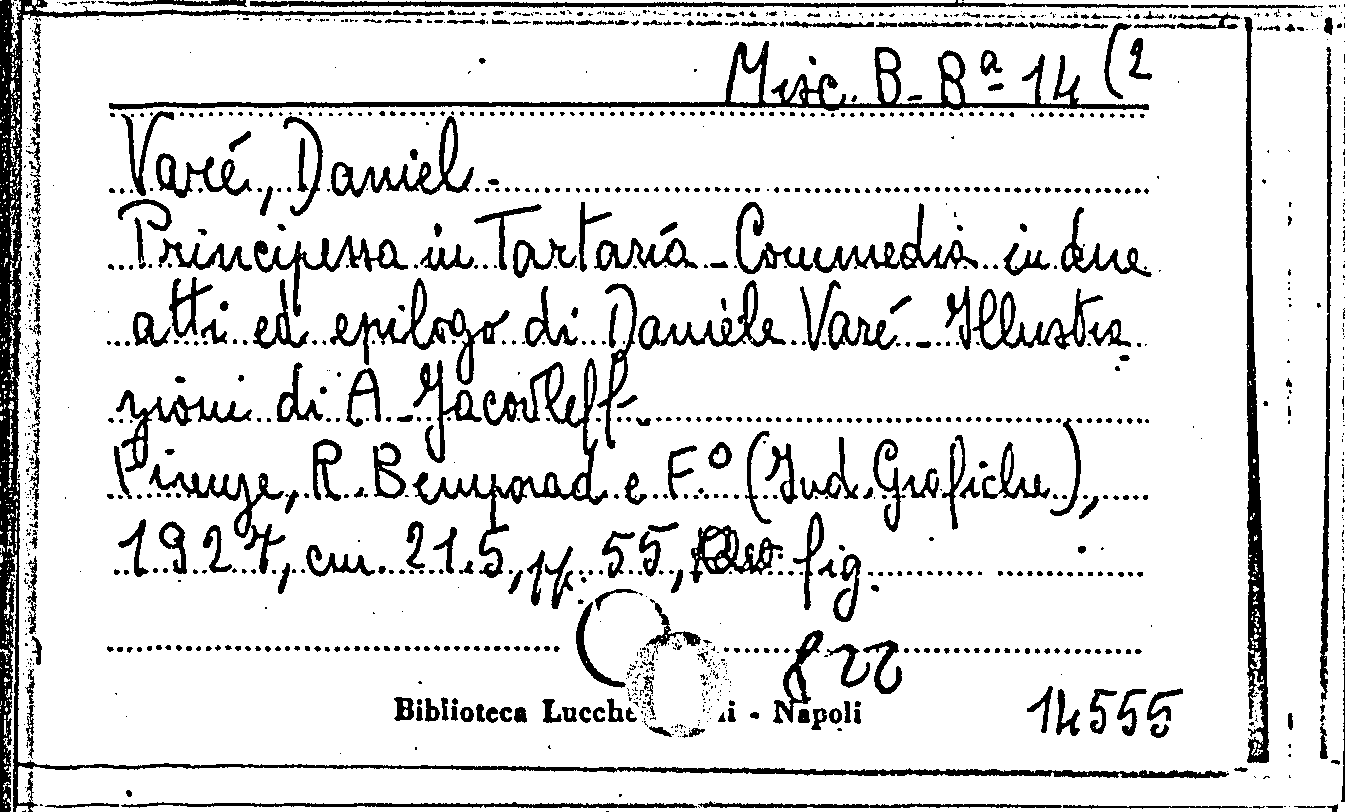 Misc. B-Bª 14 (2
Varé, Daniel.
Principessa in Tartaria - Commedia in due
atti ed epilogo di Daniele Varé - Illustra
zioni di A. Jacovleff.
Firenze, R. Bemporad e F.º (Ind. Grafiche),
1927, cm. 21.5, pp. 55, fig.
822
Biblioteca Lucche i - Napoli
14555